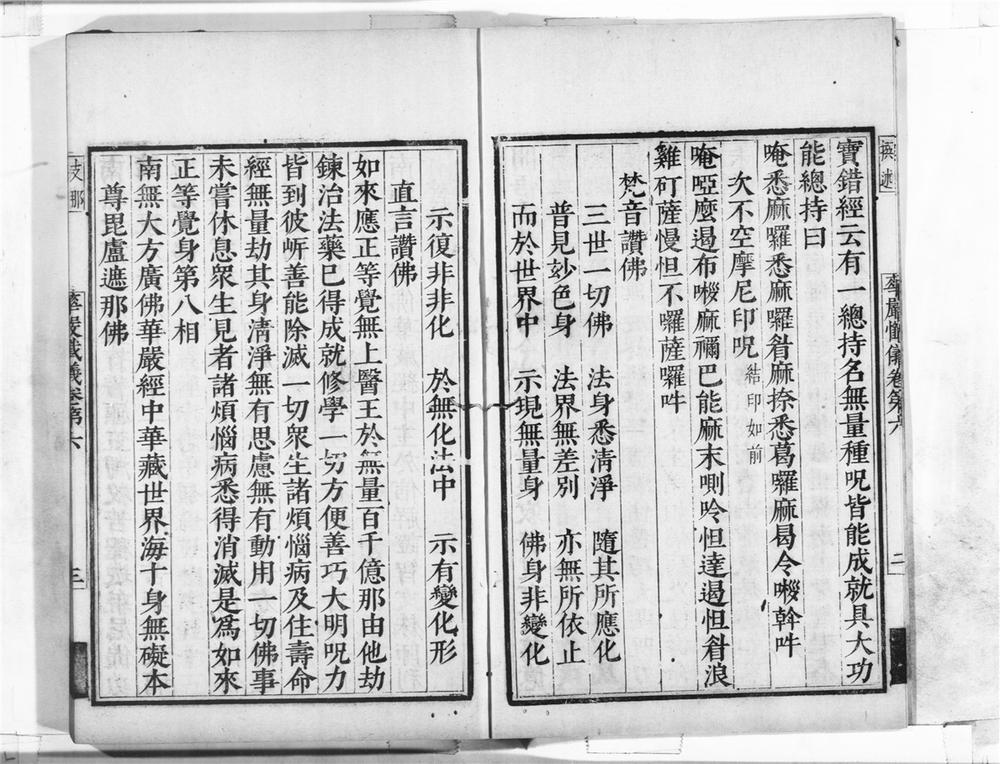 寶錯經云有一總持名無量種呪皆能成就具大功
能總持曰
唵悉麻囉悉麻囉㫺麻捺悉葛囉麻曷令㘑斡吽
次不空摩尼印呪結印如前
唵啞麼遏布㘑麻禰巴能麻末唎唥怛達遏怛㫺浪
雞矴薩慢怛不囉薩囉吽
梵音讚佛
三世一切佛 法身悉清淨 隨其所應化
普見妙色身 法界無差別 亦無所依止
而於世界中 示現無量身 佛身非變化
示復非非化 於無化法中 示有變化形
直言讚佛
如來應正等覺無上醫王於無量百千億那由他劫
鍊治法藥已得成就修學一切方便善巧大明呪力
皆到彼岍善能除滅一切衆生諸煩惱病及住壽命
經無量劫其身清淨無有思慮無有動用一切佛事
未嘗休息衆生見者諸煩惱病悉得消滅是爲如來
正等覺身第八相
南無大方廣佛華嚴經中華藏世界海十身無礙本
尊毘盧遮那佛
華嚴懺儀卷第六
二
華嚴懺儀卷第六
三
支那
撰述